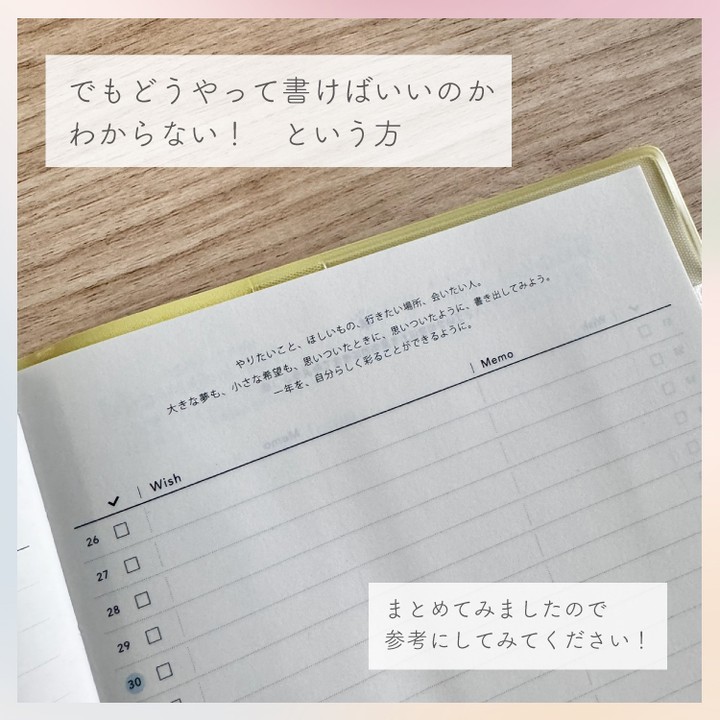 でもどうやって書けばいいのか
わからない！　という方
やりたいこと、ほしいもの、行きたい場所、会いたい人。
大きな夢も、小さな希望も、思いついたときに、思いついたように、書き出してみよう。
一年を、自分らしく彩ることができるように。
✓ | Wish | Memo
26 □
27 □
28 □
29 □
30 □
まとめてみましたので
参考にしてみてください！